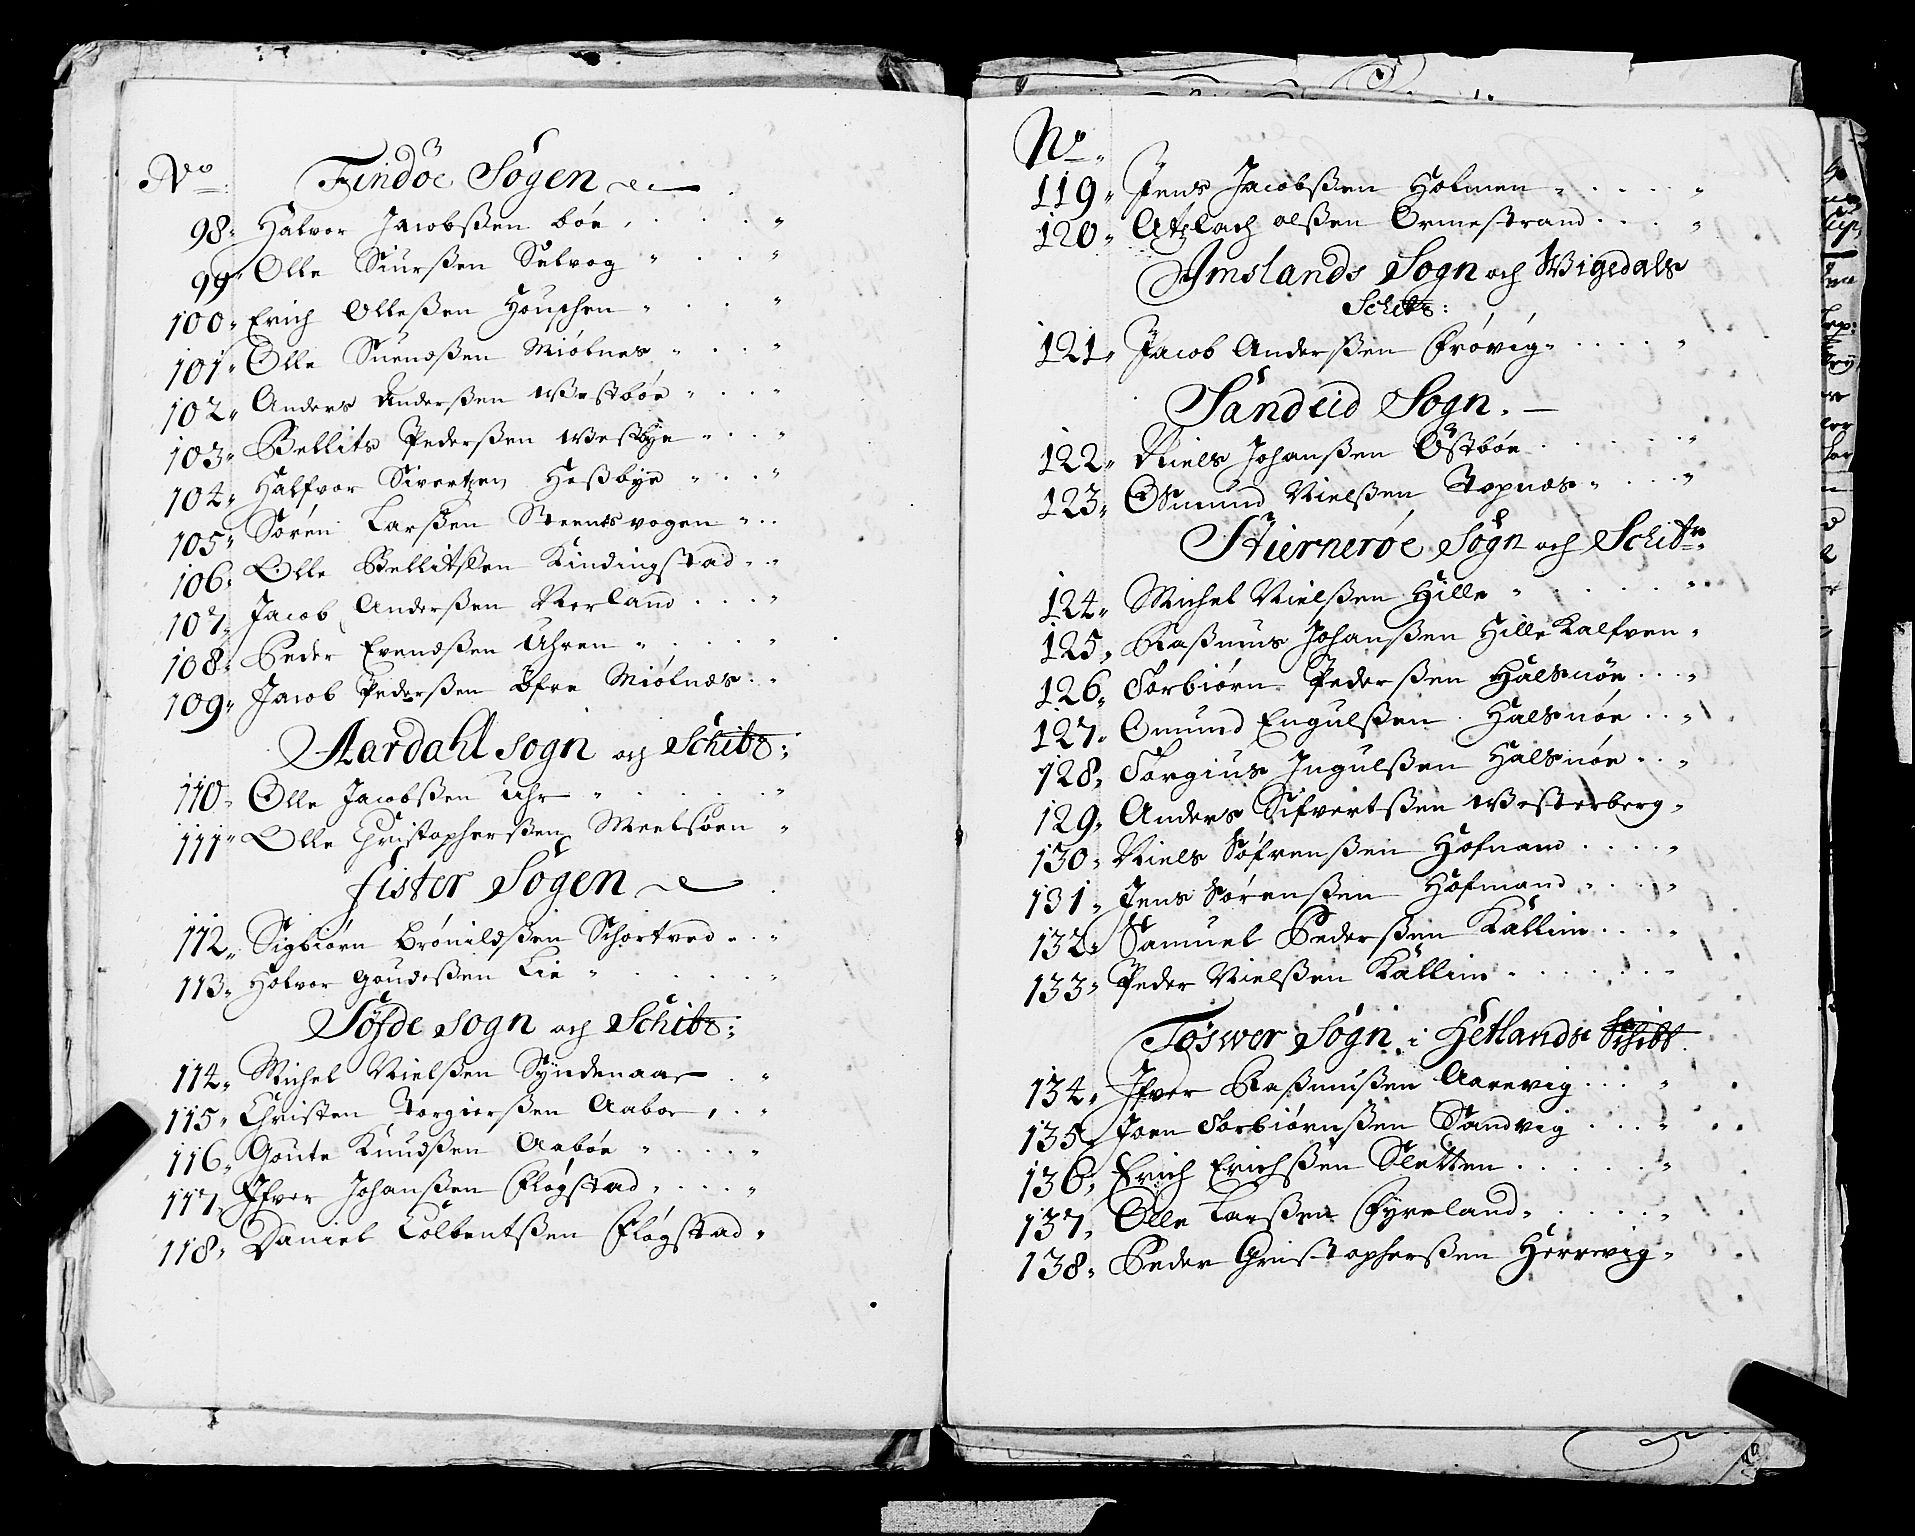 No: Findöe Sogen
98. Halvor Jacobsßen böe
99. Olle Siursßen Selvog
100. Erich Olleßen
101. Olle Suendßen Miölnes
102. Anders Anderßen Westböe
103. Bellits Pederßen Westbye
104. Halfvor Sivertzen Heßbye
105. Sören Larßen Steensvogen
106. Olle Bellitßen Kindingstad
107. Jacob Anderßen Rerland
108. Peder Evendßen Uhren
109. Jacob Pederßen Öfre Miölnæs
Aardahl Sogn och Schibr:
110. Olle Jacobßen Uhr
111. Olle Christopherßen Meelsöen
fister Sogen
112. Sigbiörn Brönildßen Schortved
113. Holvor Goudeßen Lie
Söfde Sogn och Schibr:
114. Michel Nielßen Syndenaae
115. Christen Torgierßen Aaboe
116. Goute Knudßen Aaböe
117. Ifver Johanßen Fløgstad
118. Daniel Colbentßen Fløgstad
No.
119. Jens Jacobßen Holmen
120. Atzlach olßen Ormestrand
Imslands Sogn och Wigedals
Schibr:
121. Jacob Anderßen Frövig
Sandeid Sogn.
122. Niels Johanßen Östböe
123. Osmund Nielßen Topnæs
Stierneröe Sogn och Schibr:
124. Michel Nielßen Hille
125. Raßmus Johanßen Hille Kalfven
126. Torbiörn Pederßen Halsnöe
127. Omund Engulßen Halsnöe
128. Torgius Ingulßen Halsnöe
129. Anders Sifvertßen Westerberg
130. Niels Söfrenßen Hofnam
131. Jens Sörenßen Hofmand
132. Samuel Pederßen Kallim
133. Peder Nielßen Kallim
Töswer Sogn i Hetlands Schibr
134. Ifver Raßmußen Aarevig
135. Joen Torbiörnßen Sandvig
136. Erich Erichßen Sletten
137. Olle Larßen Fyreland
138. Peder Christopherßen Herrevig